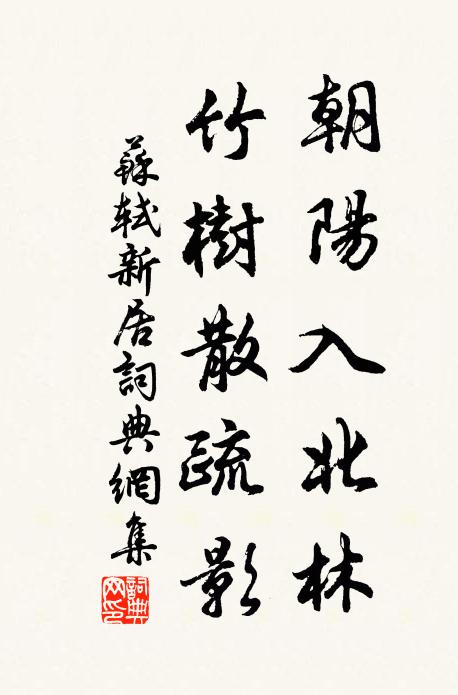 朝陽入北林
竹樹散疏影
蘇軾新居詞典網集
詞典
网印